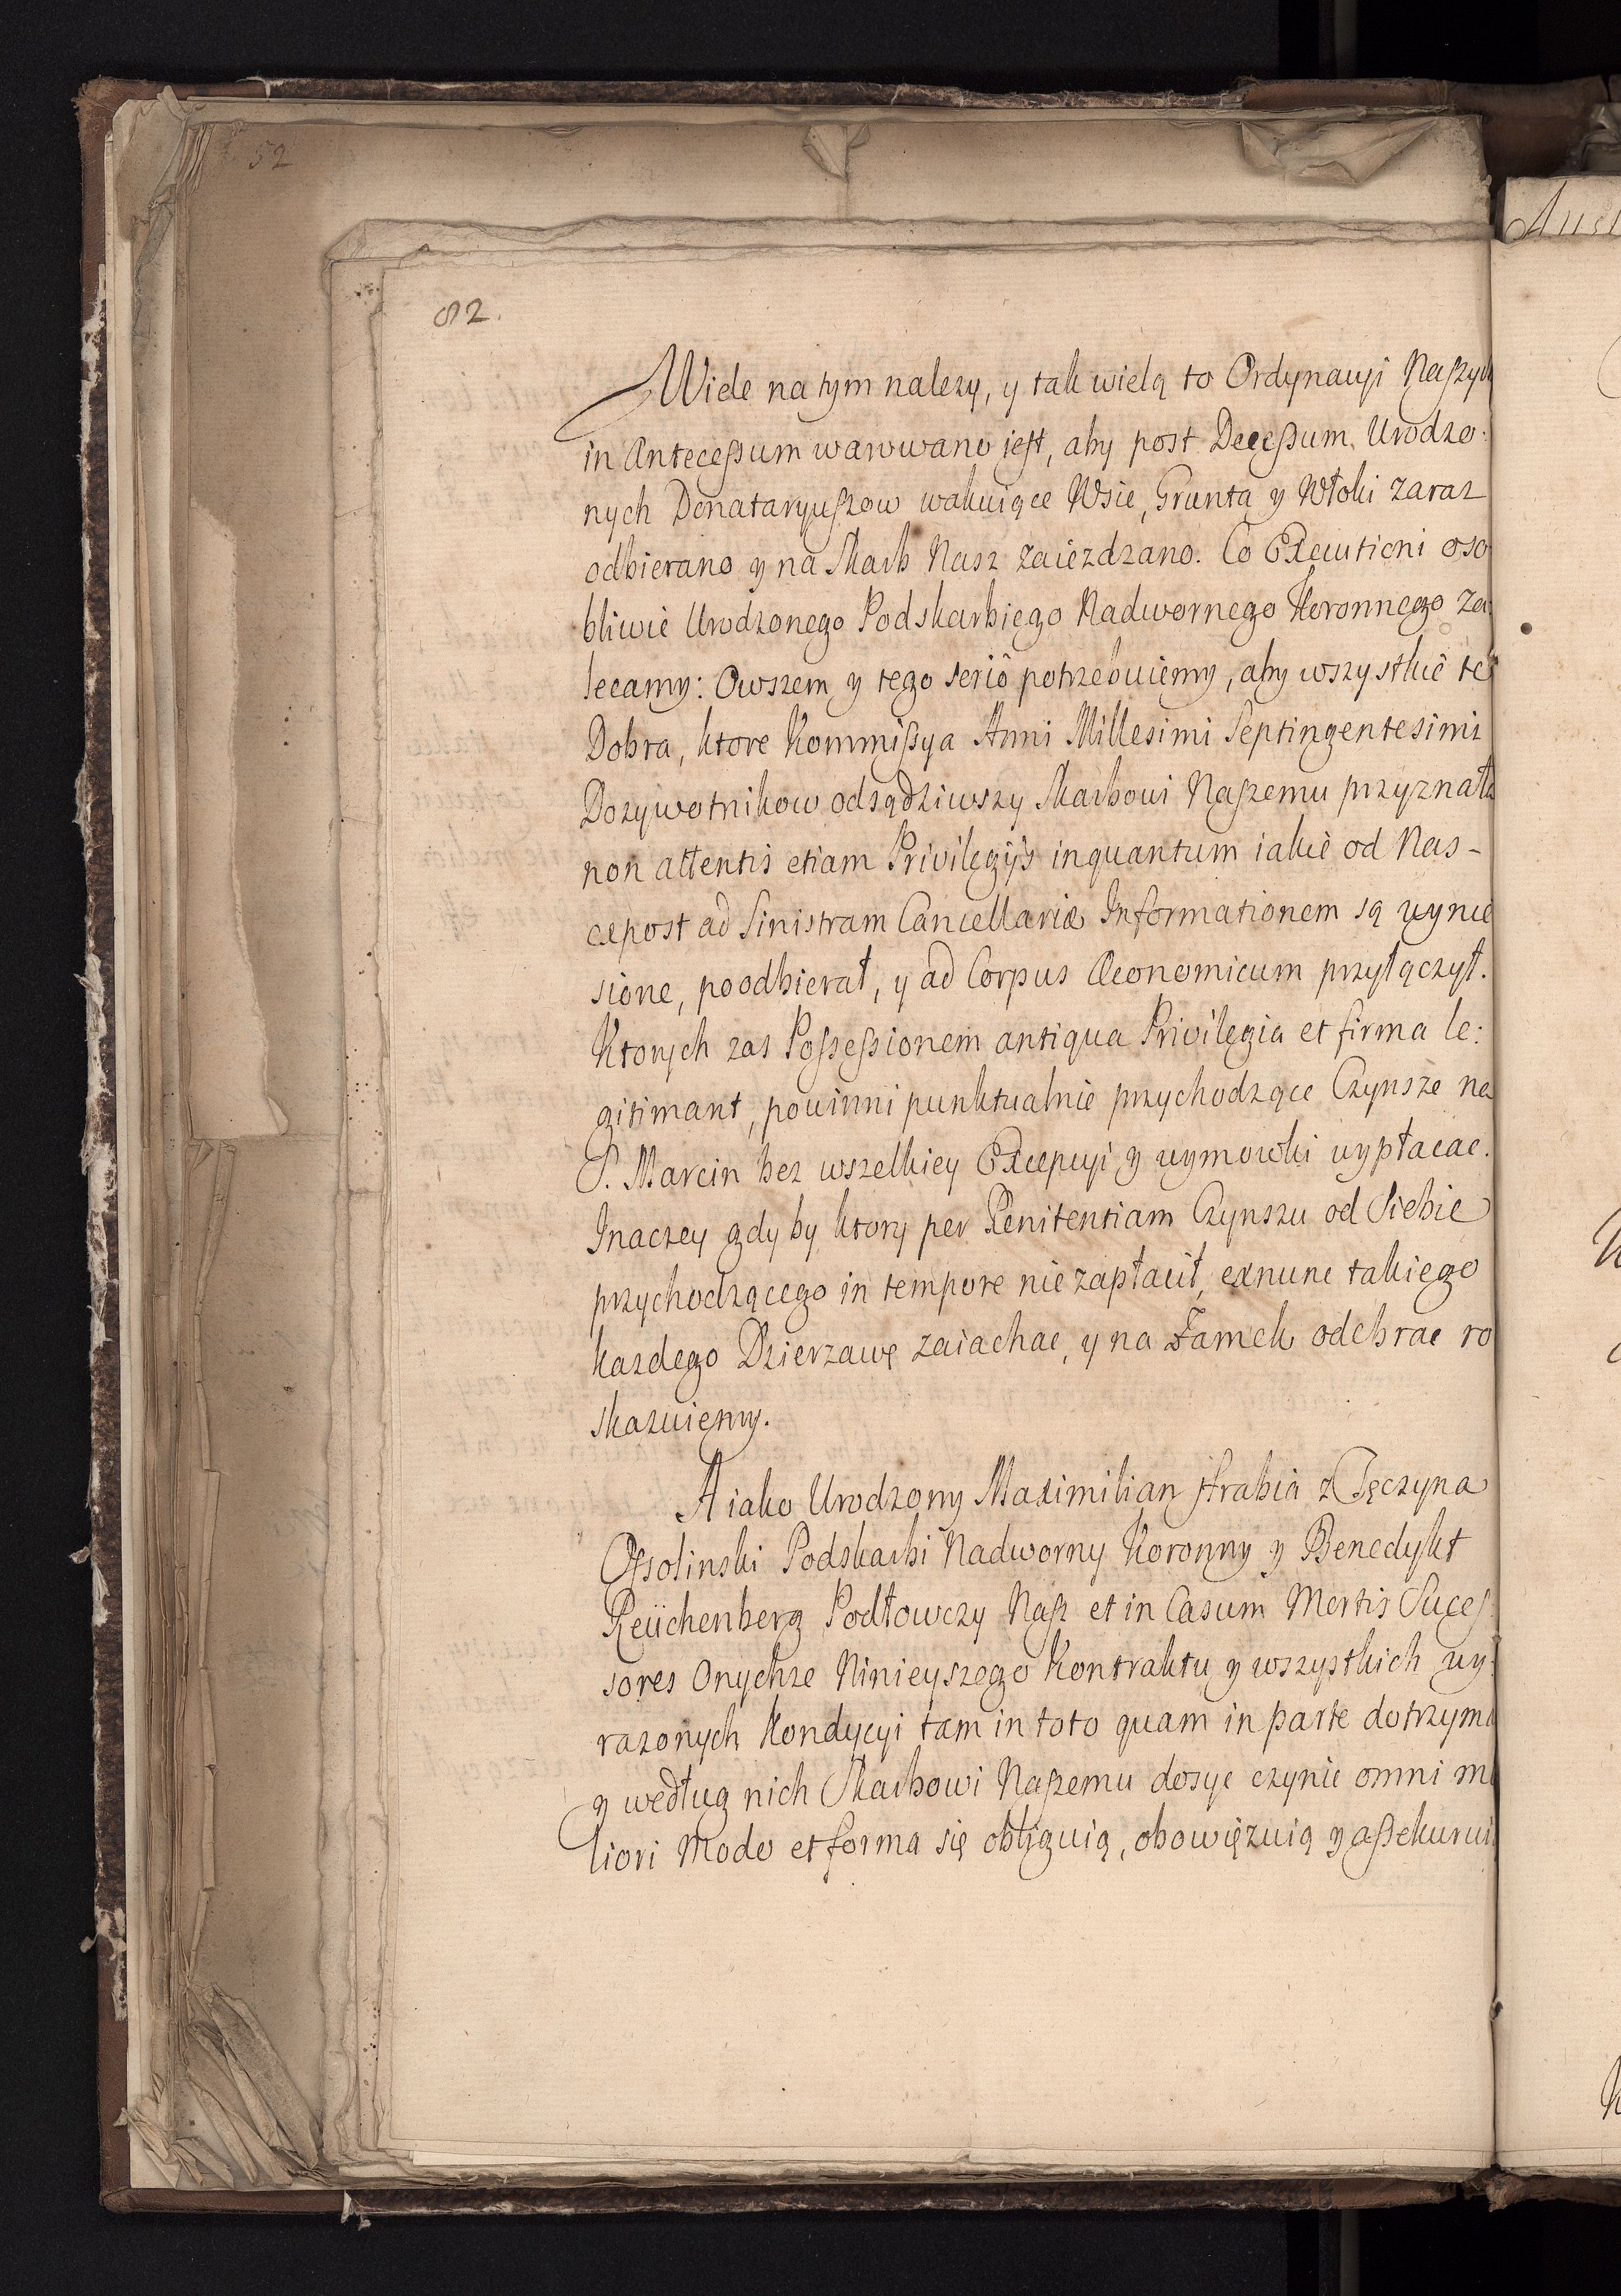 52
82.
Wiele na tym nalezy, y tak wielą to Ordynacyi Naszych
in Antecessum warowano jest, aby post Decessum Urodzo:
nych Donataryuszow wakuiące Wsie, Grunta y Włoki zaraz
odbierano y na Skarb Nasz zaiezdzano. Co Executioni oso
bliwie Urodzonego Podskarbiego Nadwornego Koronnego za
lecamy: Owszem y tego seriò potrzebuiemy, aby wszystkie te
Dobra, ktore Kommissya Anni Millesimi Septingentesimi
Dozywotnikow odsądziwszy Skarbowi Naszemu przyznała
non attentis etiam Privilegijs inquantum iakie od Nas-
cepost ad Sinistram Cancellariæ Informationem są wynie
sione, poodbierał, y ad Corpus Œconomicum przyłączył.
Ktorych zas Possessionem antiqua Privilegia et firma le:
gitimant, powinni punktualnie przychodzące Czynsze na
S. Marcin bez wszelkiey Excepcyi y wymowki wypłacac.
Inaczey gdy by ktory per Renitentiam Czynszu od Siebie
przychodzącego in tempore nie zapłacił, exnunc takiego
kazdego Dzierzawę zaiachac, y na Zamek odebrac ro
skazuiemy.
A iako Urodzony Maximilian Hrabia z Tęczyna
Ossolinski Podskarbi Nadworny Koronny y Benedykt
Reüchenberg Podłowczy Nasz et in Casum Mortis Suces
sores Onychze Ninieyszego Kontraktu y wszystkich wy:
razonych Kondycyi tam in toto quam in parte dotrzyma
y według nich Skarbowi Naszemu dosyc czynic omni me
liori Modo et forma się obliguią, obowięzuią y assekurui